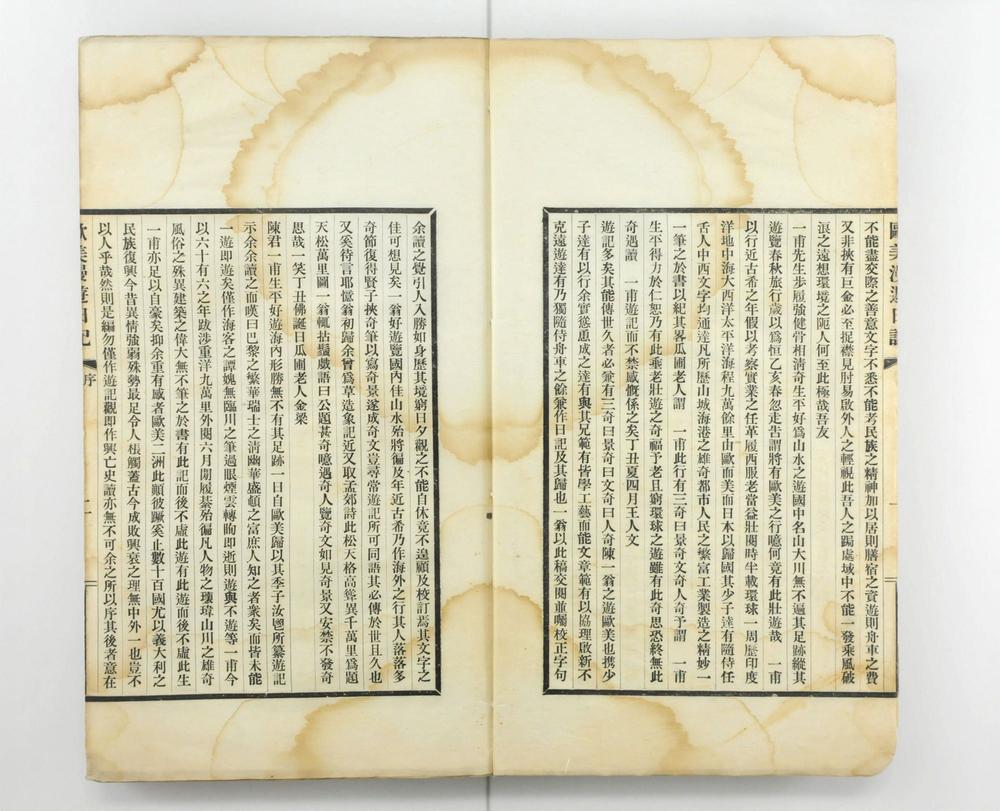 歐美漫遊日記
不能盡交際之善意文字不悉不能考民族之精神加以居則膳宿之資遊則舟車之費
又非挾有巨金必至捉襟見肘易啟外人之輕視此吾人之跼處域中不能一發乘風破
浪之遠想環境之阨人何至此極哉吾友
一甫先生步履強健骨相清奇生平好爲山水之遊國中名山大川無不遍其足跡縱其
遊覽春秋旅行歲以爲恒乙亥春忽走告謂將有歐美之行噫何竟有此壯遊哉　一甫
以行近古希之年假以考察實業之任革履西服老當益壯閱時半載環球一周歷印度
洋地中海大西洋太平洋海程九萬餘里由歐而美而日本以歸國其少子達有隨侍任
舌人中西文字均通達凡所歷山城海港之雄奇都市人民之繁富工業製造之精妙一
一筆之於書以紀其畧瓜圃老人謂　一甫此行有三奇曰景奇文奇人奇予謂　一甫
生平得力於仁恕乃有此垂老壯遊之奇福予老且窮環球之遊雖有此奇思恐終無此
奇遇讀　一甫遊記而不禁感慨係之矣丁丑夏四月王人文
遊記多矣其能傳世久者必兼有三奇曰景奇曰文奇曰人奇陳一翁之遊歐美也携少
子達有以行余實慫慂成之達有與其兄範有皆學工藝而能文章範有以協理啟新不
克遠遊達有乃獨隨侍舟車之餘兼作日記及其歸也一翁以此稿交閱並囑校正字句
余讀之覺引人入勝如身歷其境窮日夕觀之不能自休竟不遑顧及校訂焉其文字之
佳可想見矣一翁好遊覽國內佳山水殆將徧及年近古希乃作海外之行其人落落多
奇節復得賢子挾奇筆以寫奇景遂成奇文豈尋常遊記所可同語其必傳於世且久也
又奚待言耶憶翁初歸余曾爲草造象記近又取孟郊詩此松天格高聳異千萬里爲題
天松萬里圖一翁輒拈鬚戲語曰公題甚奇噫遇奇人覽奇文如見奇景又安禁不發奇
思哉一笑丁丑佛誕日瓜圃老人金梁
陳君一甫生平好遊海內形勝無不有其足跡一日自歐美歸以其季子汝鬯所纂遊記
示余余讀之而嘆曰巴黎之繁華瑞士之清幽華盛頓之富庶人知之者衆矣而皆未能
一遊即遊矣僅作海客之譚媿無臨川之筆過眼煙雲轉眴即逝則遊與不遊等一甫今
以六十有六之年跋涉重洋九萬里外閱六月閒履綦殆徧凡人物之瓌瑋山川之雄奇
風俗之殊異建築之偉大無不筆之於書有此記而後不虛此遊有此遊而後不虛此生
一甫亦足以自豪矣抑余重有感者歐美二洲此顛彼蹶奚止數十百國尤以義大利之
民族復興今昔異情強弱殊勢最足令人棖觸蓋古今成敗興衰之理無中外一也豈不
以人乎哉然則是編勿僅作遊記觀即作興亡史讀亦無不可余之所以序其後者意在
歐美漫遊日記
序
二